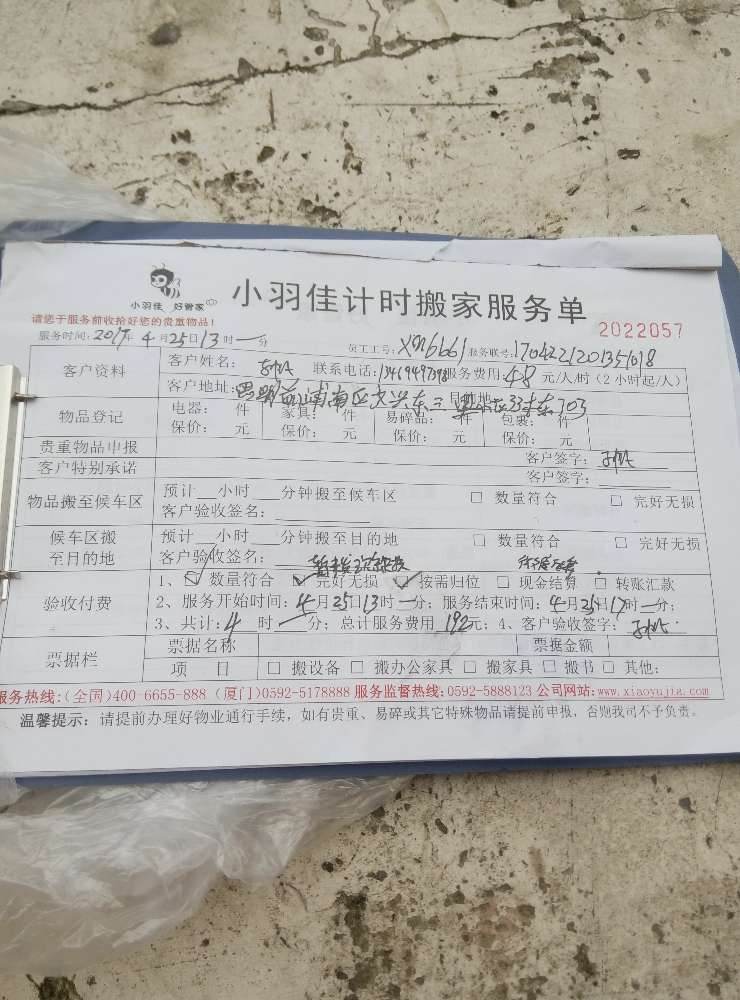 小羽佳 好管家
小羽佳计时搬家服务单
2022057
请您于服务前收拾好您的贵重物品!
服务时间: 2017年 4月25日13时一分
员工工号: XM6661 服务联号:
客户资料
客户姓名: 联系电话: 服务费用: 48 元/人/时(2小时起/人)
客户地址: 目的地:
物品登记
电器: 件 家具: 件 易碎品: 件 包裹: 件
保价: 元 保价: 元 保价: 元 保价: 元
贵重物品申报
客户签字:
客户特别承诺
客户签字:
物品搬至候车区
预计__小时___分钟搬至候车区 □ 数量符合 □ 完好无损
客户验收签名:
候车区搬至目的地
预计__小时___分钟搬至目的地 □ 数量符合 □ 完好无损
客户验收签名:
验收付费
1、☑ 数量符合 ☑ 完好无损 ☑ 按需归位 □ 现金结算 □ 转账汇款
2、服务开始时间: 4月25日13时一分; 服务结束时间: 4月25日17时一分;
3、共计: 4 时 一 分; 总计服务费用 192元; 4、客户验收签字:
票据栏
票据名称 票据金额
项 目 □ 搬设备 □ 搬办公家具 □ 搬家具 □ 搬书 □ 其他:
服务热线:(全国)400-6655-888 (厦门)0592-5178888 服务监督热线:0592-5888123 公司网站:www.xiaoyujia.com
温馨提示: 请提前办理好物业通行手续, 如有贵重、易碎或其它特殊物品请提前申报, 否则我司不予负责。